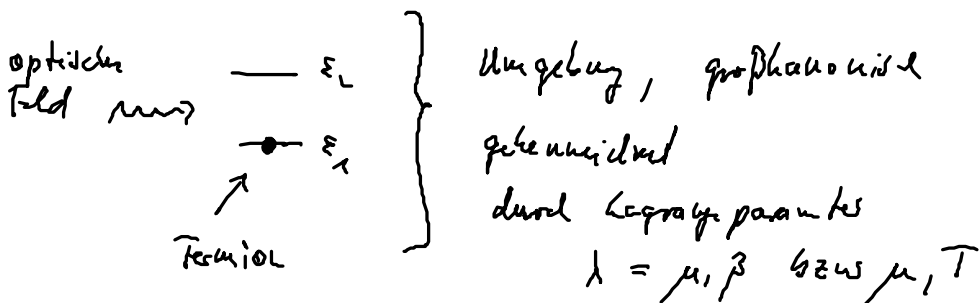 optisches
Feld
ε₂
ε₁
Fermion
Umgebung, großkanonisch
gekennzeichnet
durch Lagrangeparameter
λ = μ, β bzw μ, T